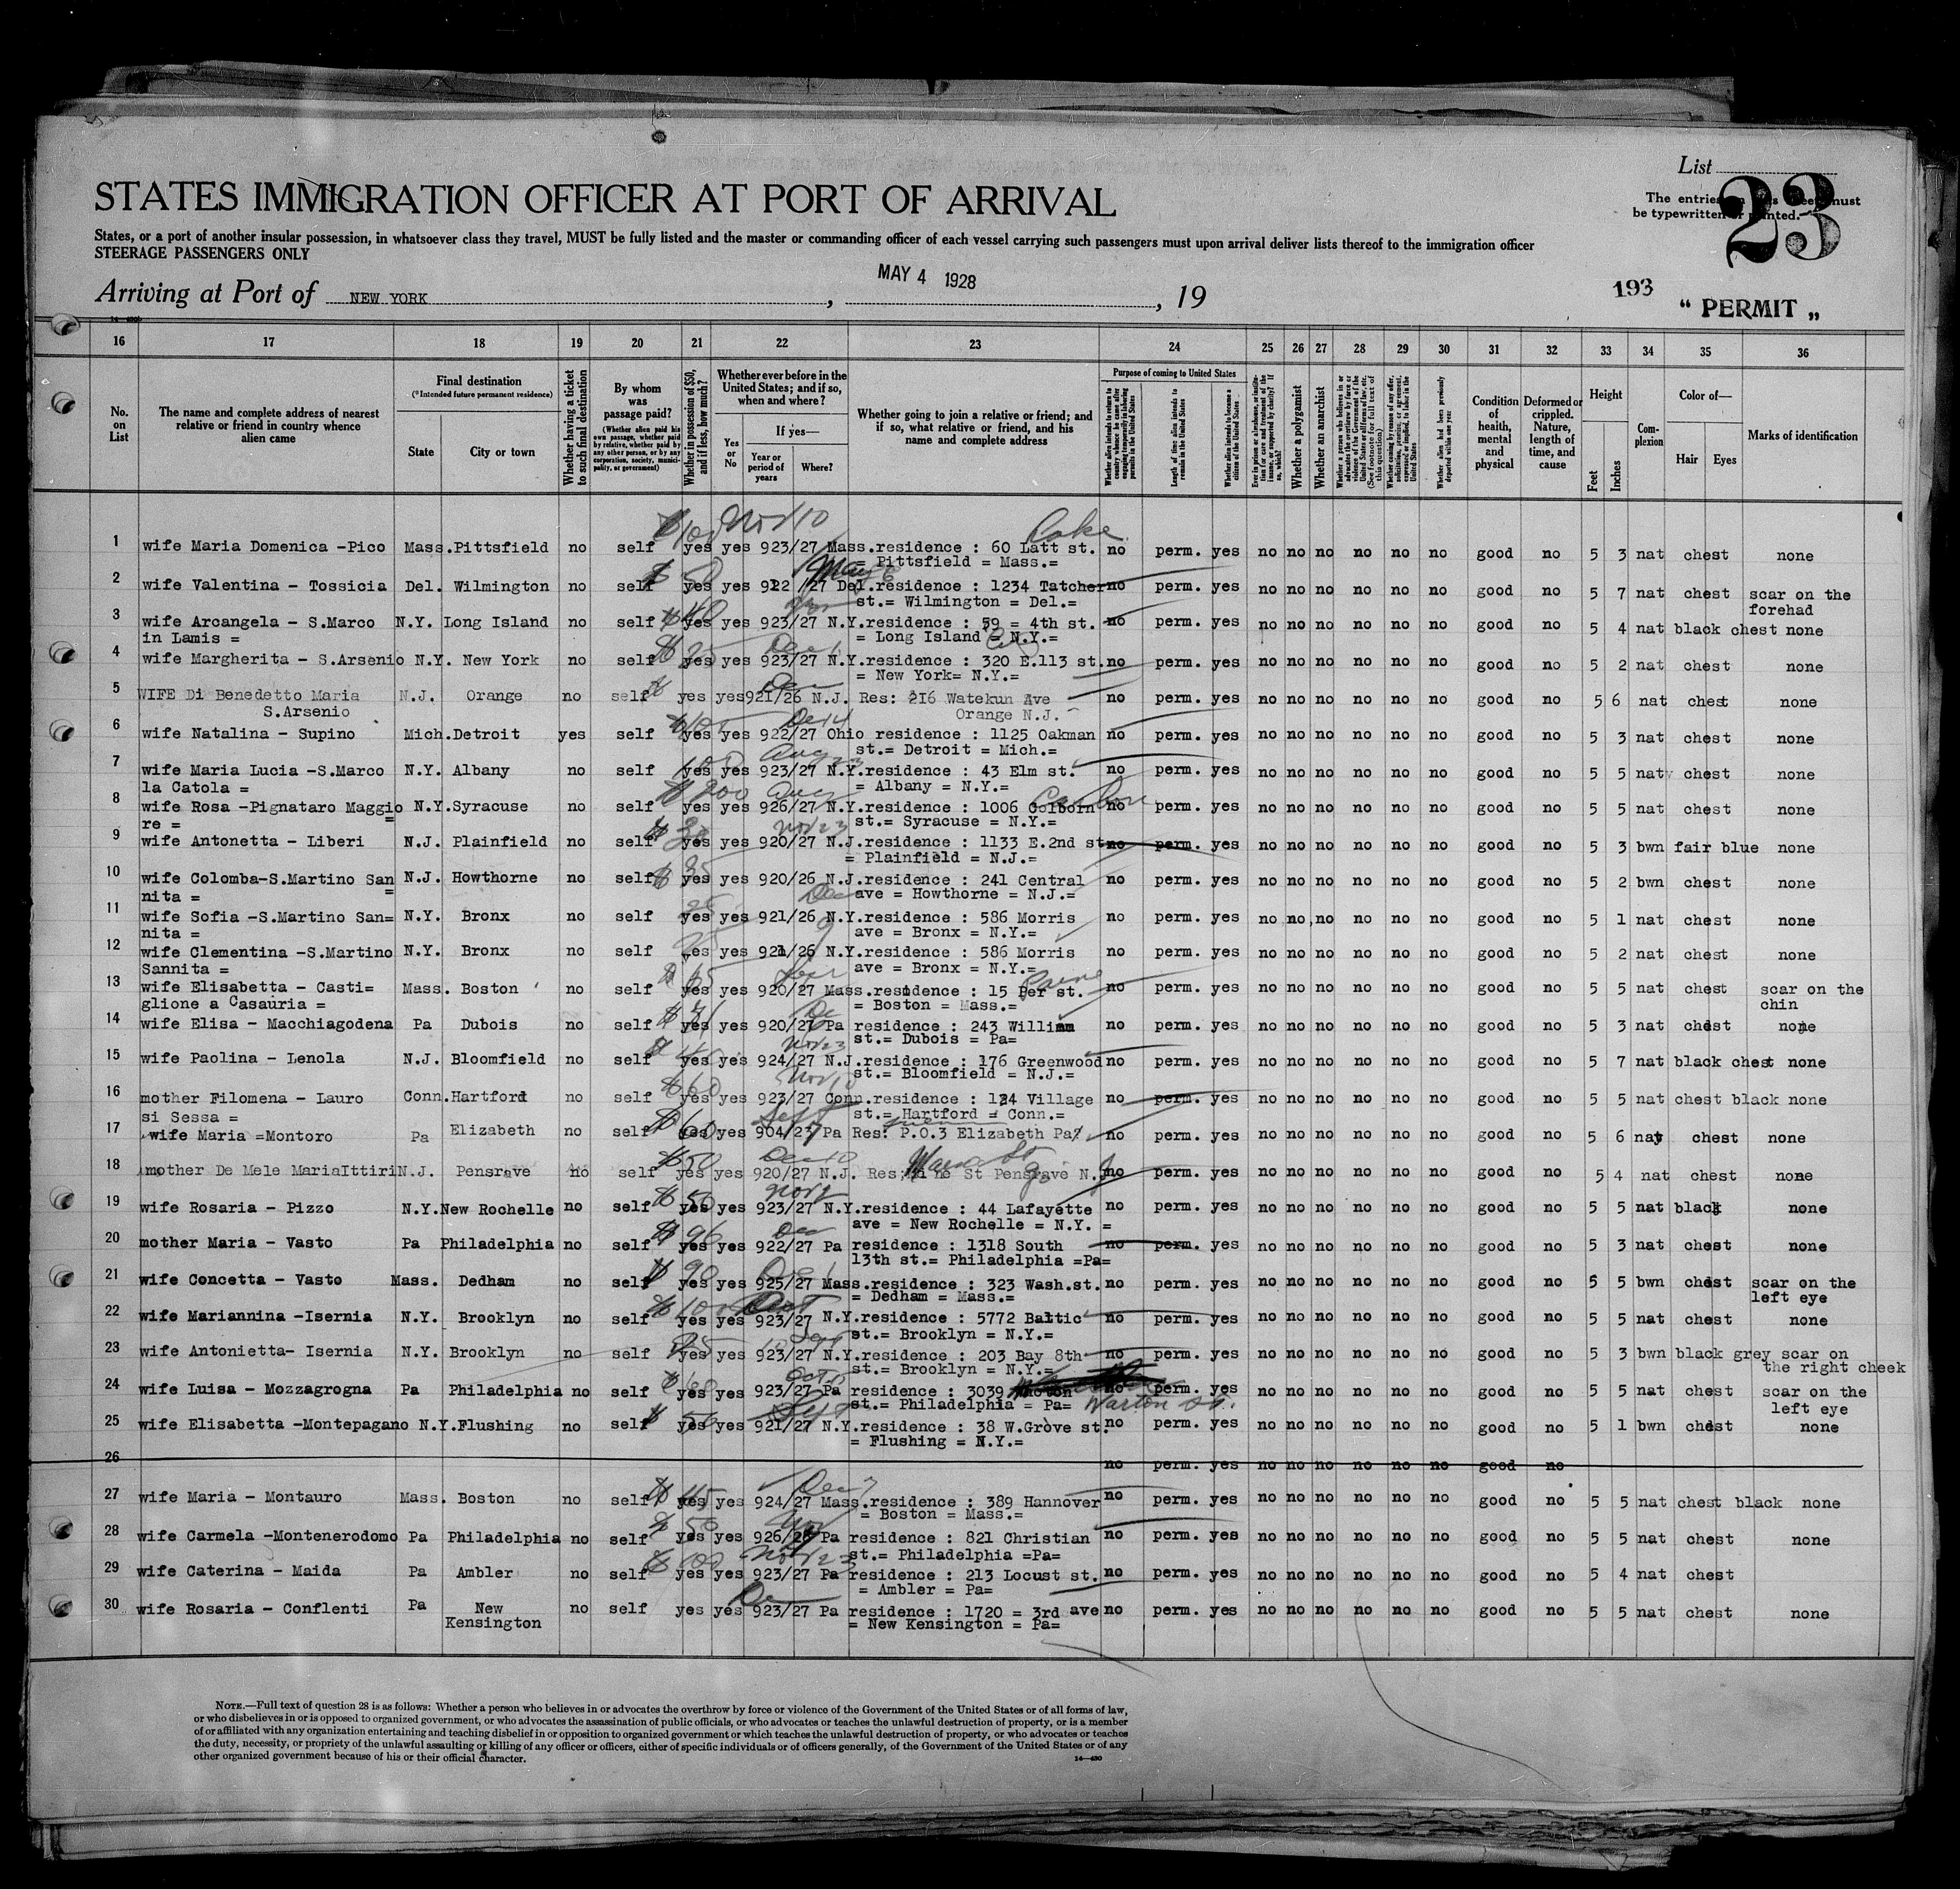 List
23
The entries on this sheet must
be typewritten or printed.
STATES IMMIGRATION OFFICER AT PORT OF ARRIVAL
States, or a port of another insular possession, in whatsoever class they travel, MUST be fully listed and the master or commanding officer of each vessel carrying such passengers must upon arrival deliver lists thereof to the immigration officer
STEERAGE PASSENGERS ONLY
Arriving at Port of NEW YORK, MAY 4 1928, 19
193
“ PERMIT „
16 17 18 19 20 21 22 23 24 25 26 27 28 29 30 31 32 33 34 35 36
No. on List
The name and complete address of nearest relative or friend in country whence alien came
Final destination
(*Intended future permanent residence)
State
City or town
Whether having a ticket to such final destination
By whom was passage paid?
(Whether alien paid his own passage, whether paid by relative, whether paid by any other person, or by any corporation, society, municipality, or government)
Whether in possession of $50, and if less, how much?
Whether ever before in the United States; and if so, when and where?
Yes or No
If yes—
Year or period of years
Where?
Whether going to join a relative or friend; and if so, what relative or friend, and his name and complete address
Purpose of coming to United States
Length of time alien intends to remain in the United States
Whether alien intends to become a citizen of the United States
Whether a polygamist
Whether an anarchist
Condition of health, mental and physical
Deformed or crippled. Nature, length of time, and cause
Height
Feet
Inches
Complexion
Color of—
Hair
Eyes
Marks of identification
1 wife Maria Domenica -Pico Mass. Pittsfield no self $100 yes yes Nov 10 923/27 Mass. residence : 60 Latt st. Lake no perm. yes no no no no no no good no 5 3 nat chest none
= Pittsfield = Mass.=
2 wife Valentina - Tossicia Del. Wilmington no self $50 yes yes 922/27 Del. residence : 1234 Tatcher no perm. yes no no no no no no good no 5 7 nat chest scar on the
st.= Wilmington = Del.= forehad
3 wife Arcangela - S.Marco N.Y. Long Island no self $40 yes yes 923/27 N.Y. residence : 59 = 4th st. no perm. yes no no no no no no good no 5 4 nat black chest none
in Lamis = = Long Island City = N.Y.=
4 wife Margherita - S.Arsenio N.Y. New York no self yes yes Dec 923/27 N.Y. residence : 320 E.113 st. no perm. yes no no no no no no good no 5 2 nat chest none
= New York= N.Y.=
5 WIFE Di Benedetto Maria N.J. Orange no self yes yes Dec 921/26 N.J. Res: 216 Watekun Ave no perm. yes no no no no no no good no 5 6 nat chest none
S.Arsenio Orange N.J.
6 wife Natalina - Supino Mich. Detroit yes self yes yes Dec 14 922/27 Ohio residence : 1125 Oakman no perm. yes no no no no no no good no 5 3 nat chest none
st.= Detroit = Mich.=
7 wife Maria Lucia -S.Marco N.Y. Albany no self 100 yes yes Aug 23 923/27 N.Y. residence : 43 Elm st. no perm. yes no no no no no no good no 5 5 nat chest none
la Catola = = Albany = N.Y.=
8 wife Rosa -Pignataro Maggio N.Y. Syracuse no self $200 yes yes Aug 926/27 N.Y. residence : 1006 Colborn no perm. yes no no no no no no good no 5 5 nat chest none
re = = st.= Syracuse = N.Y.=
9 wife Antonetta - Liberi N.J. Plainfield no self yes yes Nov 23 920/27 N.J. residence : 1133 E.2nd st no perm. yes no no no no no no good no 5 3 bwn fair blue none
= Plainfield = N.J.=
10 wife Colomba-S.Martino San N.J. Howthorne no self $35 yes yes 920/26 N.J. residence : 241 Central no perm. yes no no no no no no good no 5 2 bwn chest none
nita = = ave = Howthorne = N.J.=
11 wife Sofia -S.Martino San= N.Y. Bronx no self yes yes Dec 921/26 N.Y. residence : 586 Morris no perm. yes no no no no no no good no 5 1 nat chest none
nita = ave = Bronx = N.Y.=
12 wife Clementina -S.Martino N.Y. Bronx no self yes yes 921/26 N.Y. residence : 586 Morris no perm. yes no no no no no no good no 5 2 nat chest none
Sannita = ave = Bronx = N.Y.=
13 wife Elisabetta - Casti= Mass. Boston no self yes yes 920/27 Mass. residence : 15 Per st. no perm. yes no no no no no no good no 5 5 nat chest scar on the
glione a Casauria = = Boston = Mass.= chin
14 wife Elisa - Macchiagodena Pa Dubois no self yes yes De 920/27 Pa residence : 243 William no perm. yes no no no no no no good no 5 3 nat chest none
st.= Dubois = Pa=
15 wife Paolina - Lenola N.J. Bloomfield no self yes yes Nov 23 924/27 N.J. residence : 176 Greenwood no perm. yes no no no no no no good no 5 7 nat black chest none
st.= Bloomfield = N.J.=
16 mother Filomena - Lauro Conn. Hartford no self $60 yes yes Nov 10 923/27 Conn. residence : 124 Village no perm. yes no no no no no no good no 5 5 nat chest black none
si Sessa = st.= Hartford = Conn.=
17 wife Maria =Montoro Pa Elizabeth no self yes yes Sept 904/27 Pa Res: P.O.3 Elizabeth Pa no perm. yes no no no no no no good no 5 6 nat chest none
18 mother De Mele MariaIttiri N.J. Pensrave no self $50 yes yes Dec 10 920/27 N.J. Res; St Pensgrave N.J no perm. yes no no no no no no good no 5 4 nat chest none
19 wife Rosaria - Pizzo N.Y. New Rochelle no self $50 yes yes Nov 923/27 N.Y. residence : 44 Lafayette no perm. yes no no no no no no good no 5 5 nat black none
ave = New Rochelle = N.Y. =
20 mother Maria - Vasto Pa Philadelphia no self $96 yes yes Dec 922/27 Pa residence : 1318 South no perm. yes no no no no no no good no 5 3 nat chest none
13th st.= Philadelphia =Pa=
21 wife Concetta - Vasto Mass. Dedham no self $90 yes yes 925/27 Mass. residence : 323 Wash.st. no perm. yes no no no no no no good no 5 5 bwn chest scar on the
= Dedham = Mass.= left eye
22 wife Mariannina -Isernia N.Y. Brooklyn no self $100 yes yes 923/27 N.Y. residence : 5772 Baltic no perm. yes no no no no no no good no 5 5 nat chest none
st.= Brooklyn = N.Y.=
23 wife Antonietta- Isernia N.Y. Brooklyn no self yes yes 923/27 N.Y. residence : 203 Bay 8th no perm. yes no no no no no no good no 5 3 bwn black grey scar on
st.= Brooklyn = N.Y.= the right cheek
24 wife Luisa - Mozzagrogna Pa Philadelphia no self yes yes Oct 923/27 Pa residence : 3039 no perm. yes no no no no no no good no 5 5 nat chest scar on the
st.= Philadelphia = Pa= Warton St. left eye
25 wife Elisabetta -Montepagano N.Y. Flushing no self $50 yes yes Sept 921/27 N.Y. residence : 38 W.Grove st. no perm. yes no no no no no no good no 5 1 bwn chest none
= Flushing = N.Y.=
26 no perm. yes no no no no no no good no
27 wife Maria - Montauro Mass. Boston no self yes yes Dec 924/27 Mass. residence : 389 Hannover no perm. yes no no no no no no good no 5 5 nat chest black none
= Boston = Mass.=
28 wife Carmela -Montenerodomo Pa Philadelphia no self $50 yes yes 926/26 Pa residence : 821 Christian no perm. yes no no no no no no good no 5 5 nat chest none
st.= Philadelphia =Pa=
29 wife Caterina - Maida Pa Ambler no self yes yes Nov 23 923/27 Pa residence : 213 Locust st. no perm. yes no no no no no no good no 5 4 nat chest
= Ambler = Pa=
30 wife Rosaria - Conflenti Pa New no self yes yes De 923/27 Pa residence : 1720 = 3rd ave no perm. yes no no no no no no good no 5 5 nat chest none
Kensington = New Kensington = Pa=
NOTE.—Full text of question 28 is as follows: Whether a person who believes in or advocates the overthrow by force or violence of the Government of the United States or of all forms of law,
or who disbelieves in or is opposed to organized government, or who advocates the assassination of public officials, or who advocates or teaches the unlawful destruction of property, or is a member
of or affiliated with any organization entertaining and teaching disbelief in or opposition to organized government or which teaches the unlawful destruction of property, or who advocates or teaches
the duty, necessity, or propriety of the unlawful assaulting or killing of any officer or officers, either of specific individuals or of officers generally, of the Government of the United States or of any
other organized government because of his or their official character.
14—430